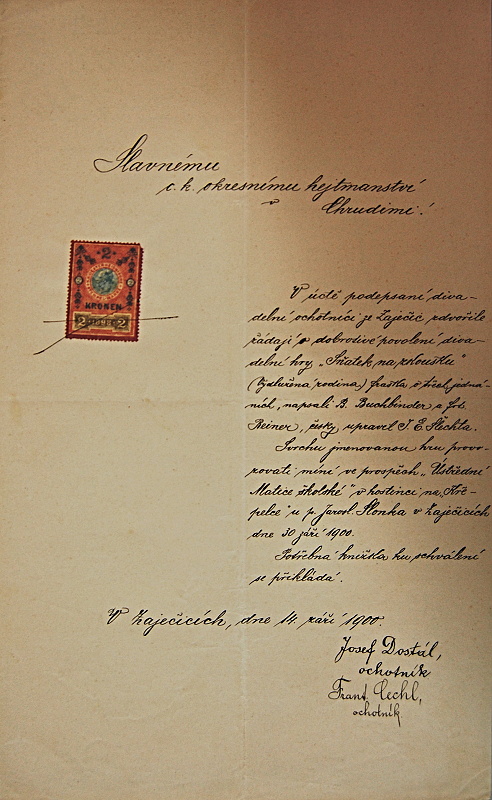 Slavnému
c. k. okresnímu hejtmanství
v
Chrudimi!
2
KRONEN
2 1898 2
V úctě podepsaní diva-
delní ochotníci ze Zaječic zdvořile
žádají o dobrotivé povolení diva-
delní hry „Sňatek na zkoušku"
(Vydlužená rodina) fraška o třech jedná-
ních, napsali B. Buchbinder a
Reiner, česky upravil J. E. Šlechta.
Svrchu jmenovanou hru provo-
zovati míní ve prospěch „Ústřední
Matice školské" v hostinci na „Kře-
pelce" u p. Jarosl. Slonka v Zaječicích
dne 30 září 1900.
Potřebná knížka ku schválení
se přikládá.
V Zaječicích, dne 14. září 1900.
Josef Dostál,
ochotník
Frant. Čechl,
ochotník